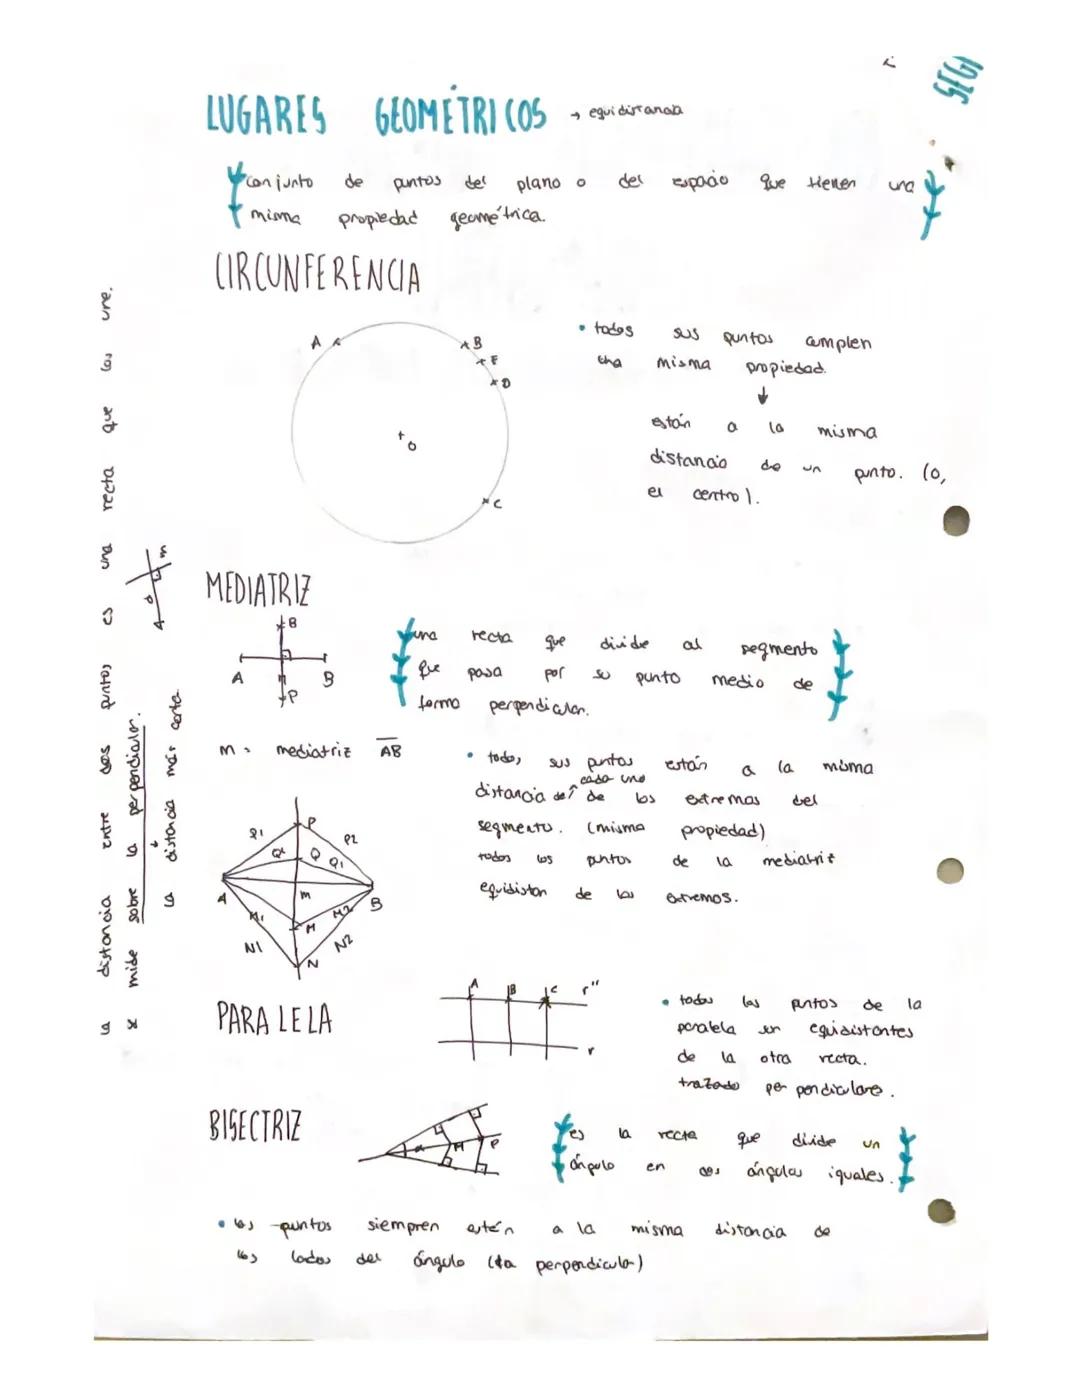 LUGARES GEOMÉTRICOS → equidistancia
conjunto de puntos del plano o del espacio que tienen una
misma propiedad geométrica.
CIRCUNFERENCIA
A
B
E
D
O
C
• todos sus puntos cumplen
una misma propiedad.
↓
están a la misma
distancia de un punto. (O,
el centro).
MEDIATRIZ
B
A
B
P
una recta que divide al segmento
que pasa por su punto medio de
forma perpendicular.
m = mediatriz AB
• todos sus puntos están a la misma
cada uno
distancia de de los extremos del
segmento. (misma propiedad)
todos los puntos de la mediatriz
equidistan de los extremos.
P
P2
Q
Q1
A
m
B
M1
M2
M
N1
N2
N
PARALELA
A
B
C
r"
r
• todos los puntos de la
paralela son equidistantes
de la otra recta.
trazado perpendiculares.
BISECTRIZ
M
P
es la recta que divide un
ángulo en dos ángulos iguales.
• los puntos siempren están a la misma distancia de
los lados del ángulo (la perpendicular)
la distancia entre dos puntos es una recta que los une.
se mide sobre la perpendicular.
↓
la distancia más corta
A
m
SEGM